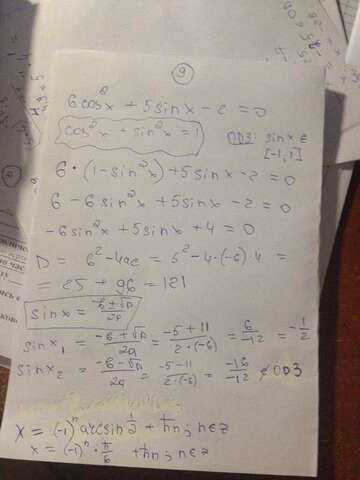 9
6cos²x + 5sinx - 2 = 0
cos²x - sin²x = 1
ОДЗ: sinx ∈
[-1, 1]
6 • (1 - sin²x) + 5sinx - 2 = 0
6 - 6sin²x + 5sinx - 2 = 0
-6sin²x + 5sinx + 4 = 0
D = b² - 4ac = 5² - 4·(-6)·4 =
= 25 + 96 = 121
sinx = -b ± √D / 2a
sinx₁ = -b + √D / 2a = -5 + 11 / 2·(-6) = 6 / -12 = -1/2
sinx₂ = -b - √D / 2a = -5 - 11 / 2·(-6) = -16 / -12 ∉ ОДЗ
x = (-1)ⁿ arcsin 1/2 + πn, n ∈ z
x = (-1)ⁿ · π/6 + πn, n ∈ z